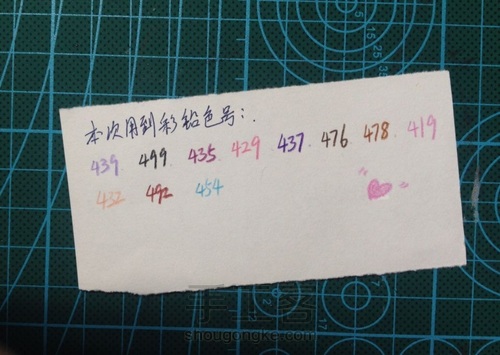 本次用到彩铅色号:.
439. 499. 435. 429 437. 476. 478. 419
432 492. 454
手工客
shougongke.com